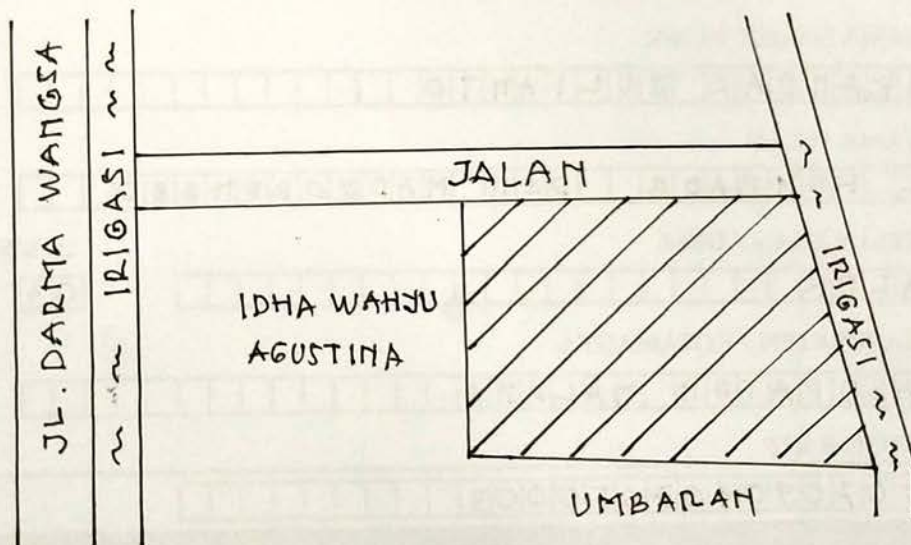 JL. DARMA WANGSA
IRIGASI
JALAN
IDHA WAHYU
AGUSTINA
IRIGASI
UMBARAN